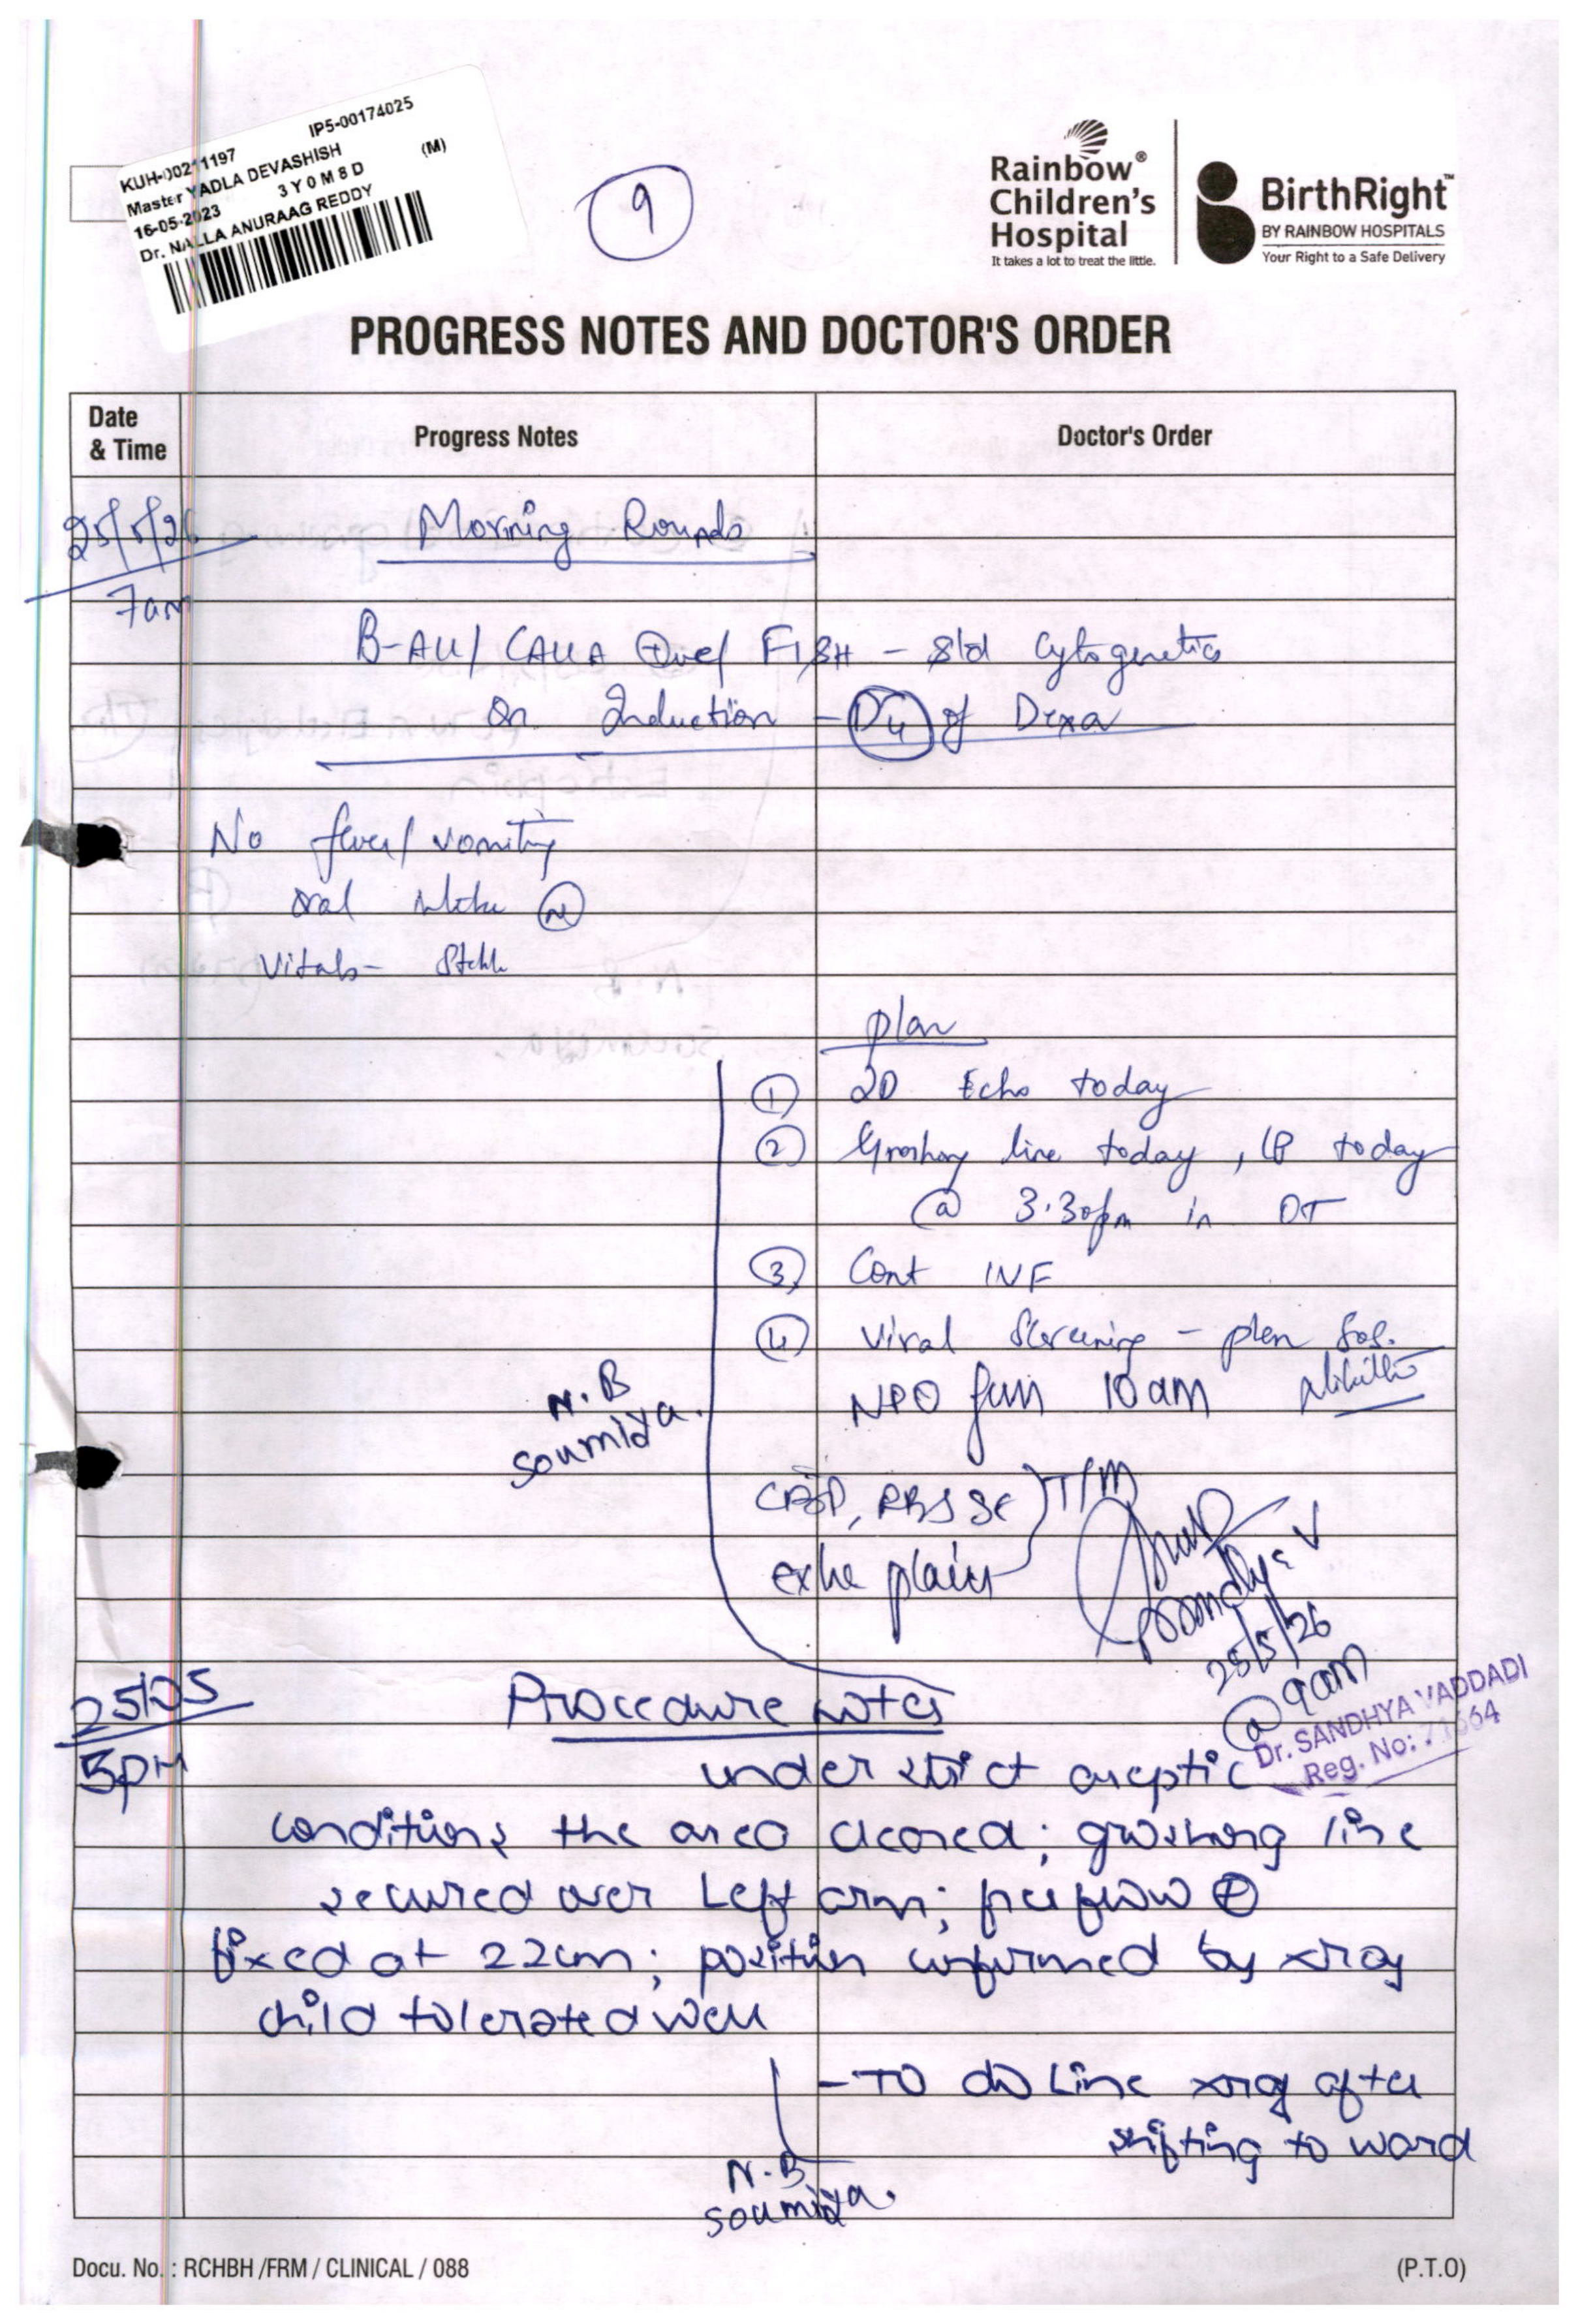 IP5-00174025
KUH-00211197
Master YADLA DEVASHISH (M)
16-05-2023 3 Y 0 M 8 D
Dr. NALLA ANURAAG REDDY
9
Rainbow®
Children's
Hospital
It takes a lot to treat the little.
BirthRight™
BY RAINBOW HOSPITALS
Your Right to a Safe Delivery
PROGRESS NOTES AND DOCTOR'S ORDER
Date & Time
Progress Notes
Doctor's Order
25/5/26
7am
Morning Rounds
B-ALL / CALLA +ve / FISH - s/d Cytogenetics
On Induction - D4 of Dexa
No fever / vomiting
oral intake N
Vitals - Stable
plan
1 2D Echo today
2 Groshong line today, LP today
@ 3:30pm in OT
3 Cont INF
4 Viral Screening - plan
NPO from 10 am
N.B
Soumidya.
CBP, RBS SE } T/M
extra plain
Sandhya V
25/5/26
@ 9am
Dr. SANDHYA VADDADI
Reg. No: 71664
25/05
5PM
Procedure notes
under strict aseptic
conditions the area cleaned; groshong line
secured over Left arm; free flow +
fixed at 22cm; position confirmed by xray
child tolerated well
- TO do Line xray after
shifting to ward
N.B
Soumidya.
Docu. No. : RCHBH /FRM / CLINICAL / 088
(P.T.O)